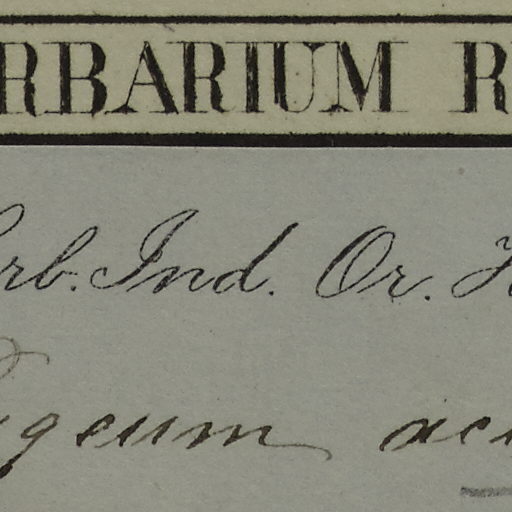 RBARIUM R
erb. Ind. Or. H
ygeum aci